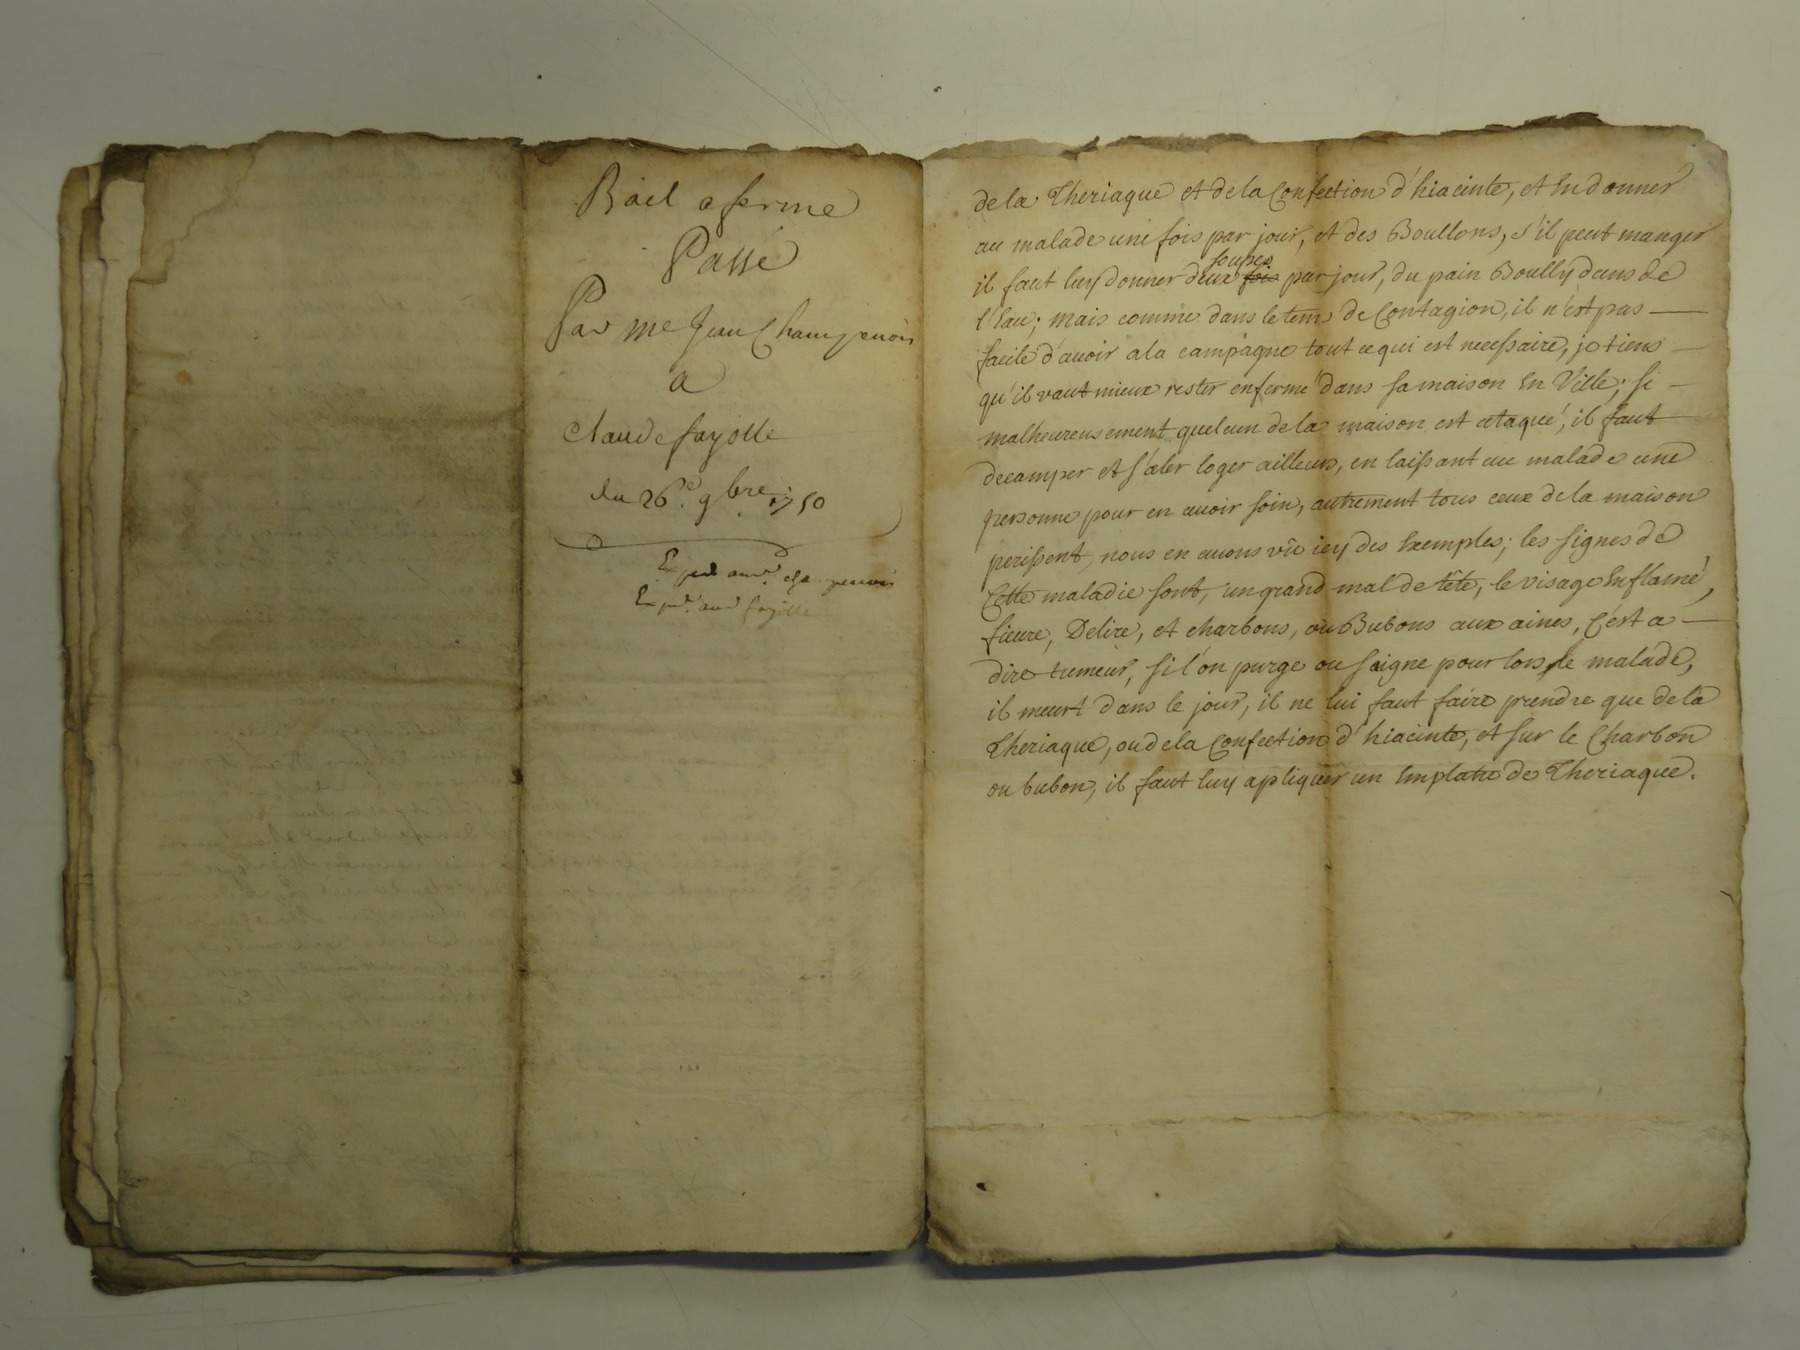 Bail a ferme
Passé
Par me Jean Champenois
a
claude fayolle
du 26.e 9bre. 1750
Exped. champenois
Exped. fayolle
de la Theriaque et de la Confection d'hiacinte, et En donner
au malade une fois par jour, et des Boullons, s'il peut manger
soupes
il faut luy donner deux fois par jour, du pain Boully dans de
l'Eau; mais comme dans le tems de Contagion, il n'est pas
facile d'avoir a la campagne tout ce qui est necessaire, je tiens
qu'il vaut mieux rester enfermé dans sa maison En Ville; si
malheureusement quelcun de la maison est ataqué, il faut
decamper et s'aler loger ailleurs, en laissant au malade une
personne pour en avoir soin, autrement tous ceux de la maison
perissent, nous en avons vû icy des Exemples; les signes de
Cette maladie sont, un grand mal de tête, le visage Enflamé,
fievre, Delire, et charbons, ou Bubons aux aines, C'est a
dire tumeur, si l'on purge ou saigne pour lors le malade,
il meurt dans le jour, il ne lui faut faire prendre que de la
Theriaque, ou de la Confection d'hiacinte, et sur le Charbon
ou bubon, il faut luy apliquer un Emplatre de Theriaque.